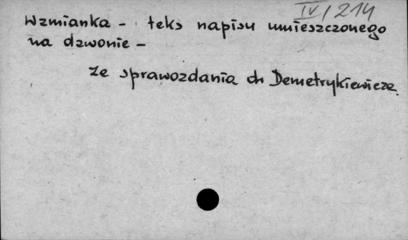 IV/214
Wzmianka - teks napisu umieszczonego
na dzwonie -
ze sprawozdania dr Demetrykiewicza